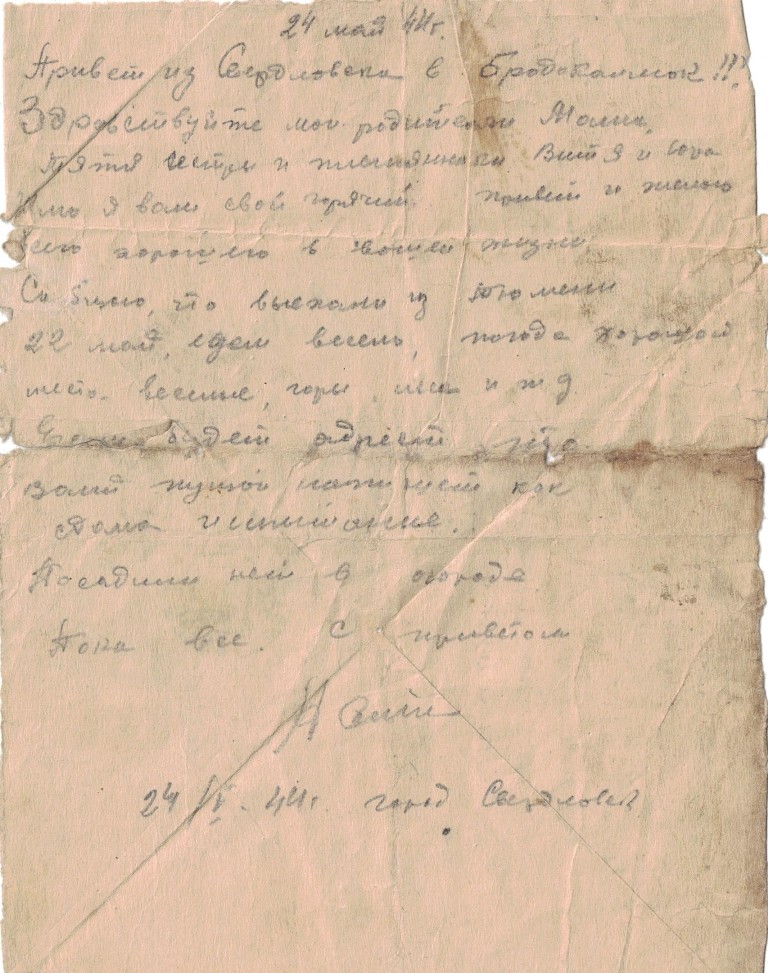 24 май 44г.
Привет из Свердловска в Бродокалмок!!!
Здравствуйте мои родители Мама,
тятя сестры и племянники Витя и Вова
Шлю я вам свой горячий привет и желаю
всего хорошего в вашей жизни.
Сообщаю, что выехали из Тюмени
22 май, едем весело, погода хорошая
места веселые, горы, леса и т д
будет адрест
вам пиши как
дома питание.
Посадили нет в огороде
Пока все. С приветом
24/V. 44г город Свердловск